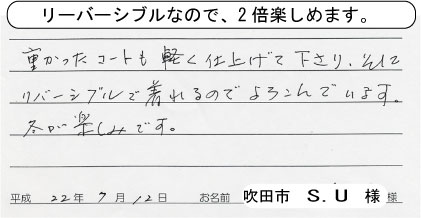 リーバーシブルなので、2倍楽しめます。
重かったコートも軽く仕上げて下さり、そして
リバーシブルで着れるのでよろこんでいます。
冬が楽しみです。
平成 22年 7月 12日 お名前 吹田市 S.U 様 様